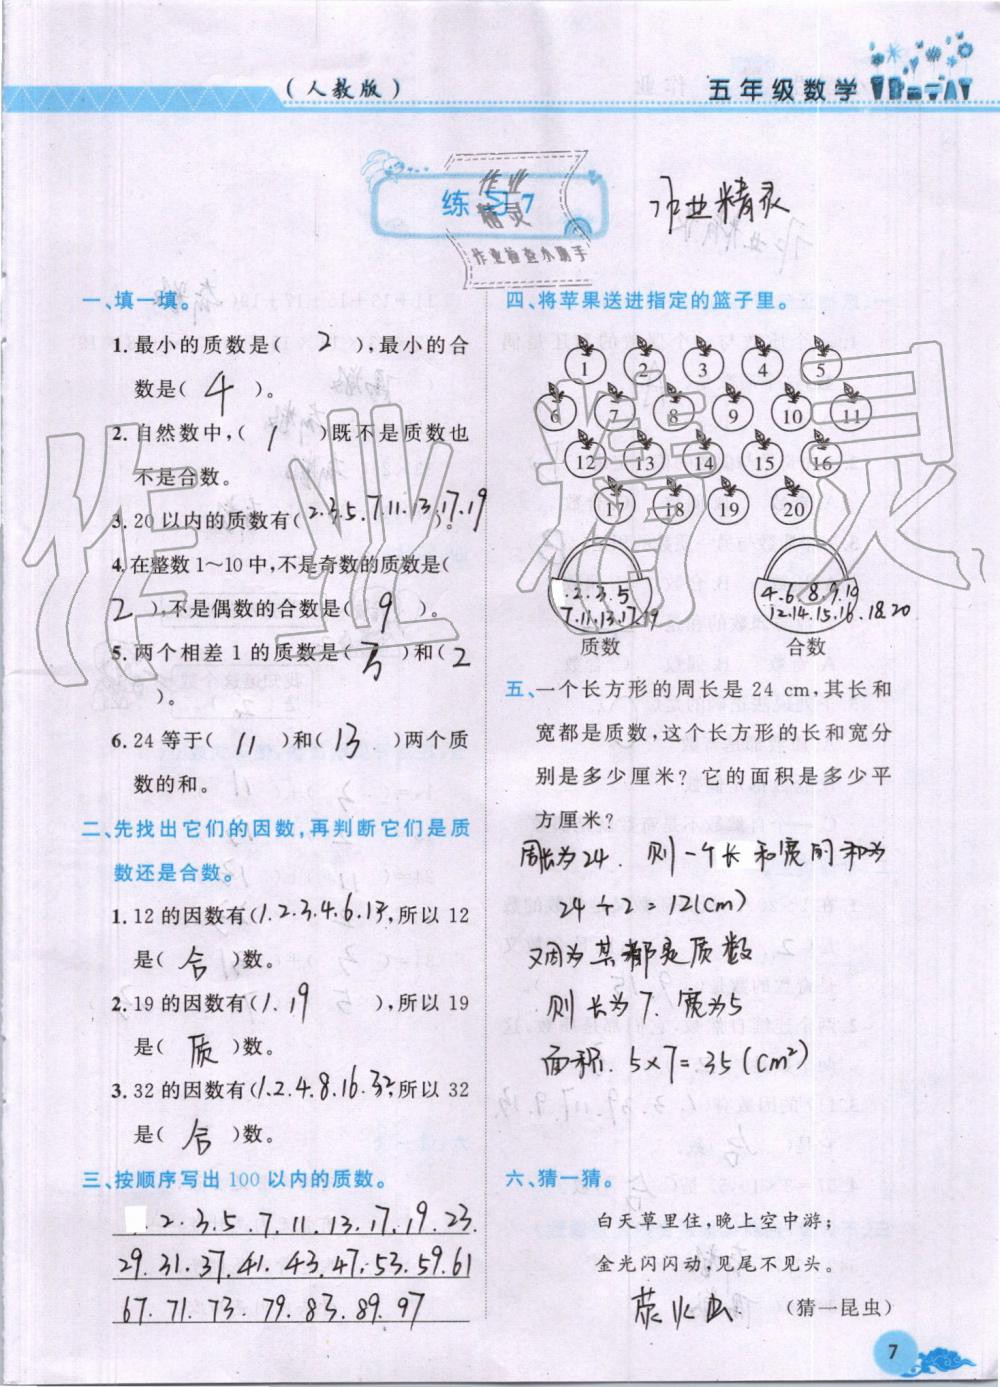 （人教版）
五年级数学
练习7
作业
精灵
作业检查小助手
作业精灵
一、填一填。
1.最小的质数是( 2 ),最小的合
数是( 4 )。
2.自然数中,( 1 )既不是质数也
不是合数。
3.20以内的质数有(2.3.5.7.11.13.17.19)。
4.在整数1~10中,不是奇数的质数是(
2 ),不是偶数的合数是( 9 )。
5.两个相差1的质数是( 3 )和( 2
)。
6.24等于( 11 )和( 13 )两个质
数的和。
二、先找出它们的因数,再判断它们是质
数还是合数。
1.12的因数有(1.2.3.4.6.12),所以12
是( 合 )数。
2.19的因数有(1.19 ),所以19
是( 质 )数。
3.32的因数有(1.2.4.8.16.32),所以32
是( 合 )数。
三、按顺序写出100以内的质数。
2.3.5.7.11.13.17.19.23.
29.31.37.41.43.47.53.59.61
67.71.73.79.83.89.97
四、将苹果送进指定的篮子里。
1 2 3 4 5
6 7 8 9 10 11
12 13 14 15 16
17 18 19 20
.2.3.5
7.11.13.17.19
质数
4.6.8.9.10
12.14.15.16.18.20
合数
五、一个长方形的周长是24 cm,其长和
宽都是质数,这个长方形的长和宽分
别是多少厘米?它的面积是多少平
方厘米?
周长为24.则一个长和宽的和为
24÷2=12(cm)
又因为其都是质数
则长为7.宽为5
面积.5×7=35(cm²)
六、猜一猜。
白天草里住,晚上空中游;
金光闪闪动,见尾不见头。
萤火虫
(猜一昆虫)
7
作业精灵